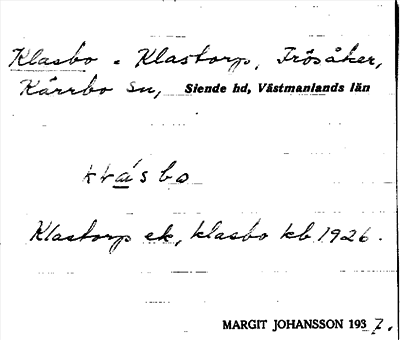 Klasbo = Klastorp, Frösåker,
Kärrbo sn, Siende hd, Västmanlands län
klásbo
Klastorp ek, klasbo kb 1926.
MARGIT JOHANSSON 1937.